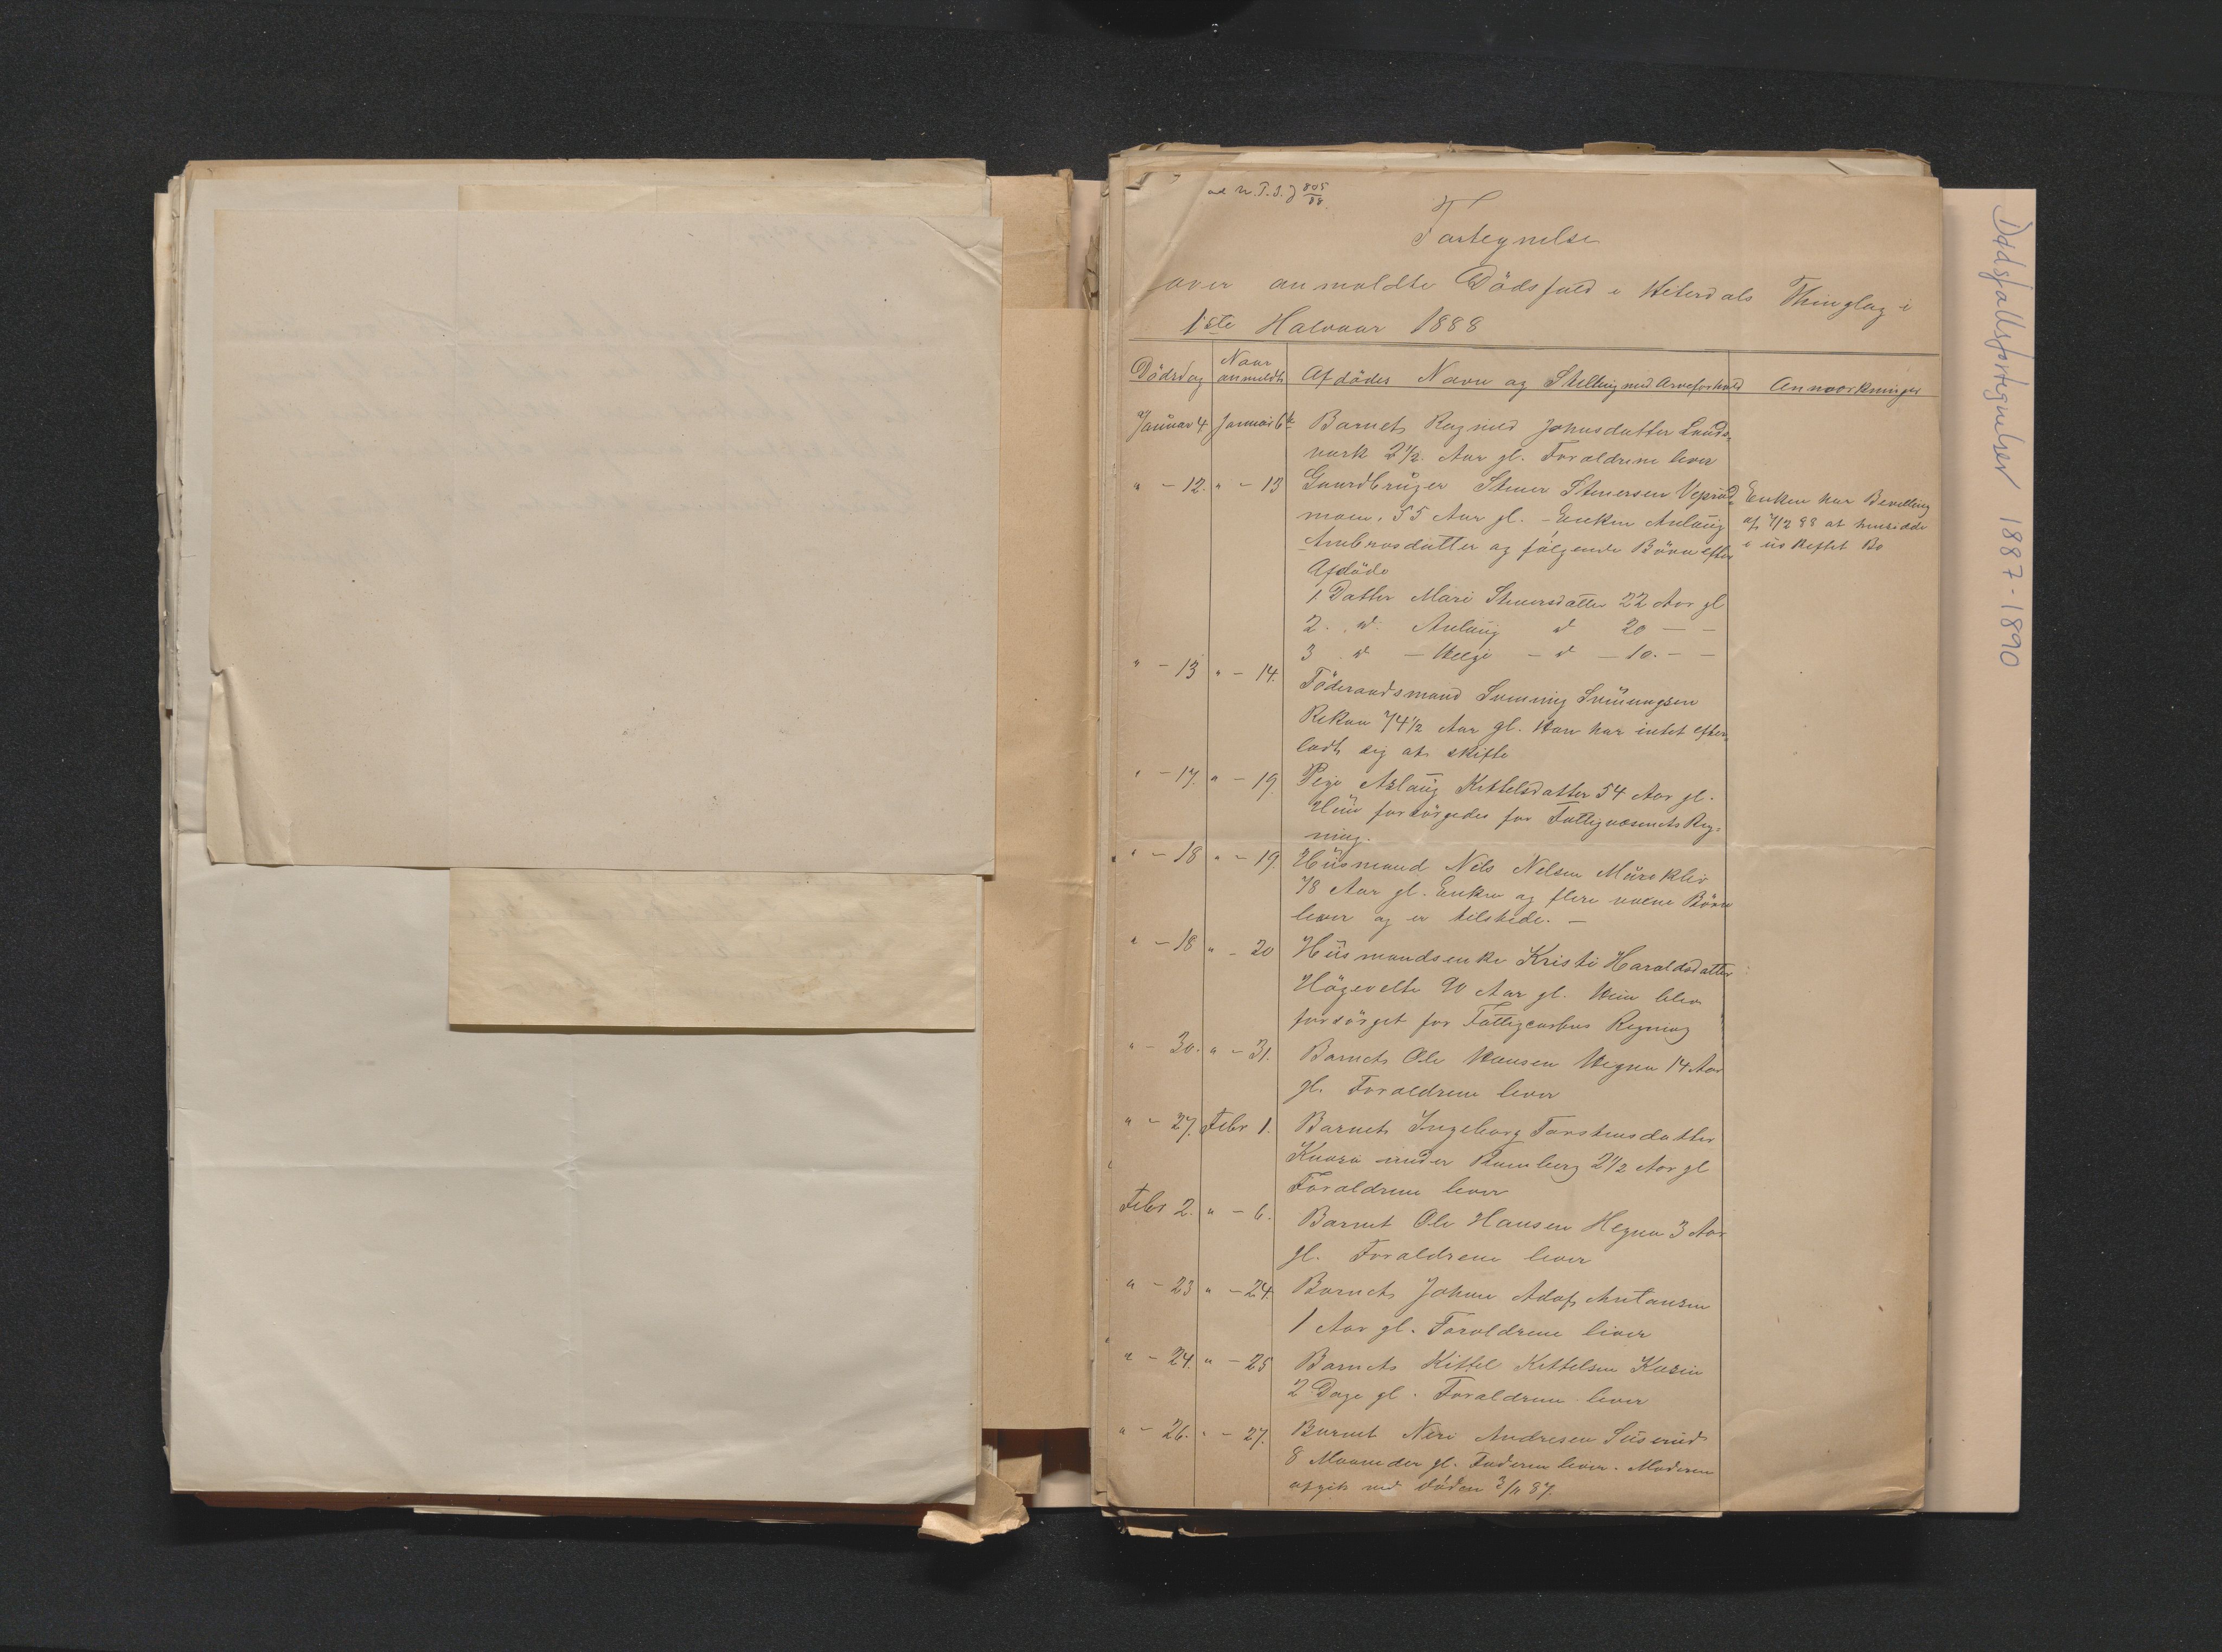 ad N.T.S.J 805/88.
Fortegnelse
over anmeldte Dödsfald i Hiterdals Thinglag i
1ste Halvaar 1888
Dödsdag Naar anmeldt Afdödes Navn og Stilling med Arveforhold Anmærkninger
Januar 4 Januar 6te Barnet Ragnild Johnsdatter Lands-
værk 2 1/2 Aar gl. Forældrene lever
" - 12. " - 13 Gaardbruger Stener Stenersen
moen, 55 Aar gl. - Enken Anlaug
Ambrosdatter og følgende Börn efter
Afdöde
Enken har Bevilling
af 7/2 88 at hensidde
i uskiftet Bo
1 Datter Mari Stenersdatter 22 Aar gl
2. d. Anlaug d 20 — —
3 d — Helge — d — 10. — —
" - 13 " - 14. Föderaadsmand Sveinung Sveinungsen
74 1/2 Aar gl. Han har intet efter-
ladt sig at skifte
" - 17. " - 19. Pige Aslaug Kittelsdatter 54 Aar gl.
Hun forsörgedes for Fattigvæsenets Reg-
ning.
" - 18 " - 19. Husmand Nils Nelsen
78 Aar gl. Enken og flere voxne Börn
lever og er tilstede. —
" - 18 " - 20 Husmandsenke Kristi Haraldsdatter
Högevelte 90 Aar gl. Hun blev
forsörget for Fattigcasens Regning
" - 30. " - 31. Barnet Ole Hansen Hegna 14 Aar
gl. Forældrene lever
" - 27. Febr 1. Barnet Ingeborg Torstensdatter
under Ramberg 2 1/2 Aar gl
Forældrene lever
Febr 2. " - 6. Barnet Ole Hansen Hegna 3 Aar
gl. Forældrene lever
" - 23 " - 24. Barnet Johan Adof Antonsen
1 Aar gl. Forældrene lever
" - 24. " - 25 Barnet Kittel Kittelsen Kasin
2 Dage gl. Forældrene lever
" - 26. " - 27. Barnet Neri Andresen
8 Maaneder gl. Faderen lever. Moderen
afgik ved döden 3/11 87.
Dødsfallsfortegnelser 1887-1890